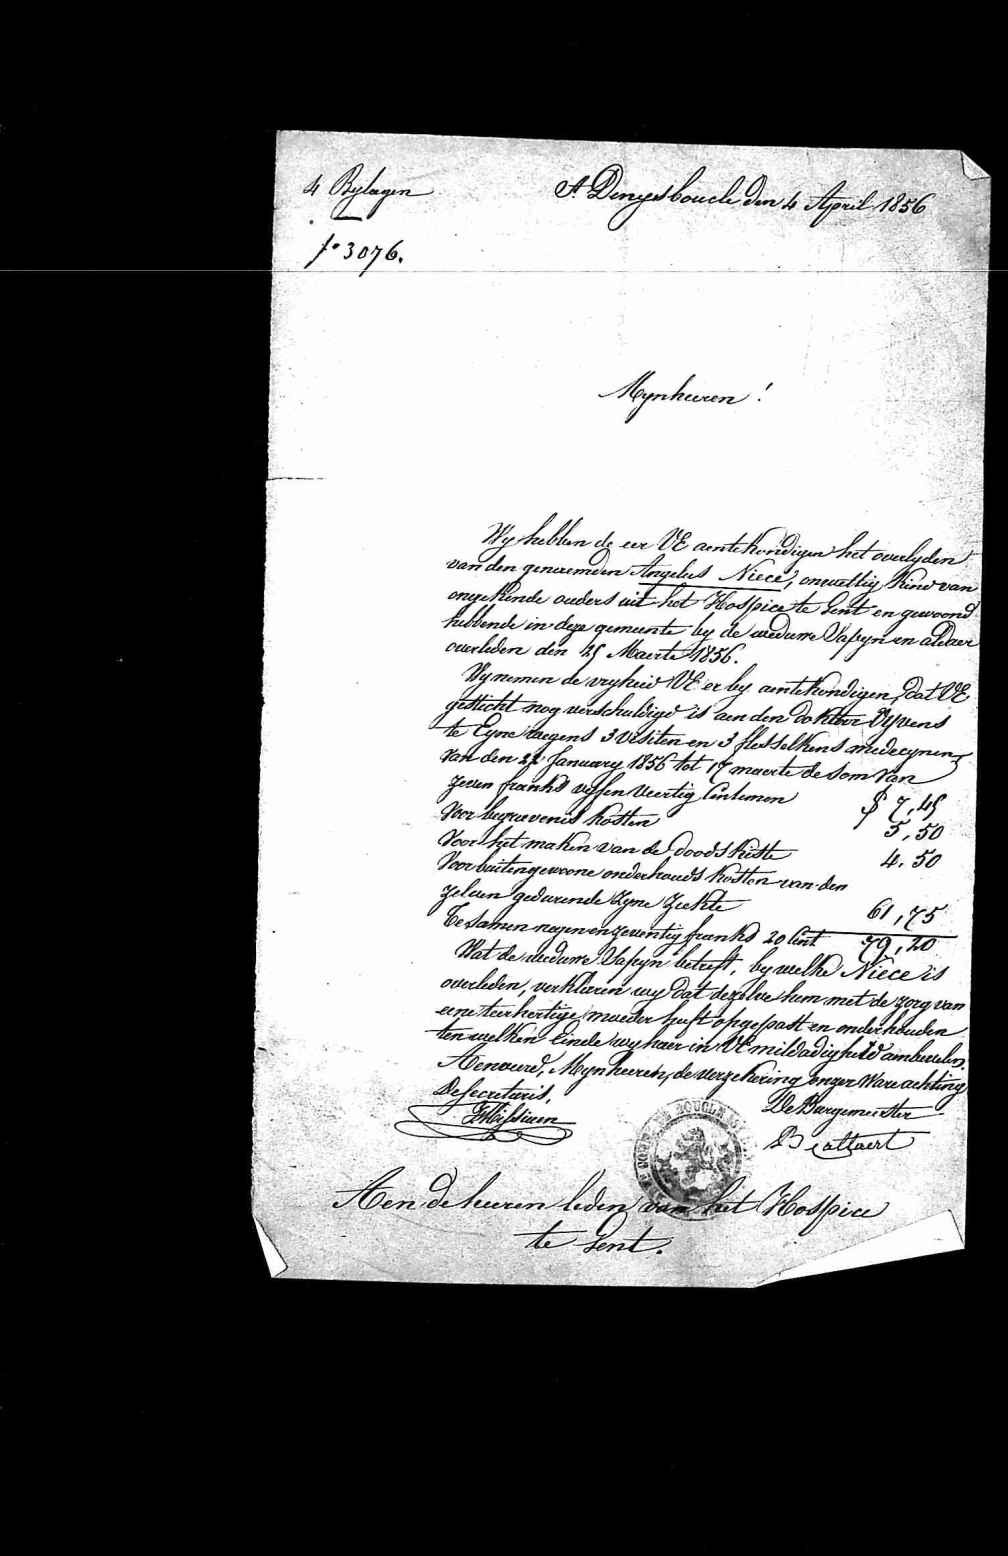 4 Bylagen
St Denysboucle den 4 April 1856
f° 3076.
Mynheeren !
Wy hebben de eer VE aentekondigen het overlyden
van den genaemden Angelus Niece, onwettig Kind van
ongekende ouders uit het Hospice te Gent en gewoond
hebbende in deze gemeente by de weduwe Vapyn en aldaer
overleden den 25 Maerte 1856.
Wy nemen de vryheid VE er by aentekondigen, dat VE
gesticht nog verschuldigd is aen den doktoor Vyvens
te Eyne wegens 3 visiten en 3 flesselkens medecynen
van den 22 January 1856 tot 17 maerte de som van
zeven franks vyf en veertig Centimen 7,45
Voor begravenis kosten 5,50
Voor het maken van de doods kiste 4.50
Voor buitengewone onderhouds kosten van den
zelven gedurende zyne ziekte 61,75
Te samen negen en zeventig franks 20 Cent 79,20
Wat de weduwe Vapyn betreft, by welke Niece is
overleden, verklaren wy dat dezelve hem met de zorg van
eene teerhertige moeder heeft opgepast en onderhouden
ten welken Einde wy haer in VE mildadigheid ambevelen.
Aenveerd, Mynheeren, de verzekering onzer Ware achting
De Secretaris,
De Burgemeester
Beattaert
BOUCLE
Aen de heeren leden van het Hospice
te Gent.